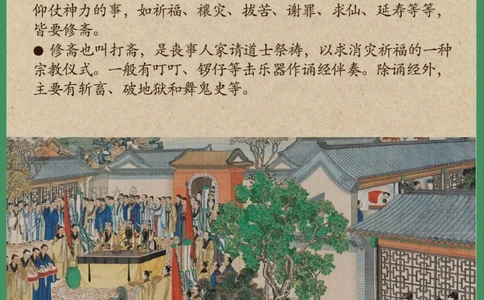 仰仗神力的事，如祈福、禳灾、拔苦、谢罪、求仙、延寿等等，
皆要修斋。
● 修斋也叫打斋，是丧事人家请道士祭祷，以求消灾祈福的一种
宗教仪式。一般有叮叮、锣仔等击乐器作诵经伴奏。除诵经外，
主要有斩畜、破地狱和舞鬼史等。